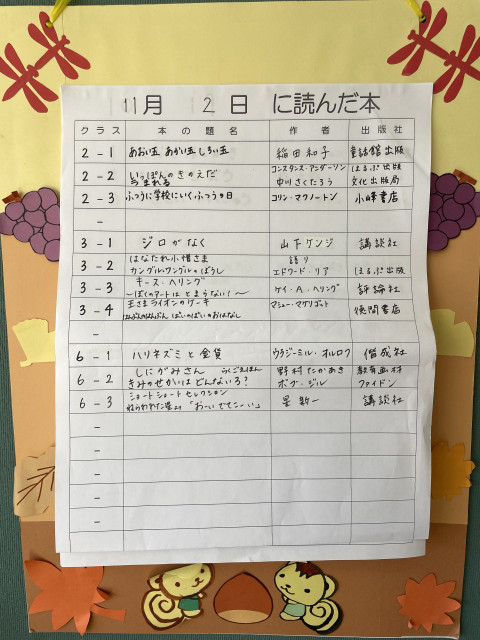 11月 12日 に読んだ本
クラス 本の題名 作者 出版社
2-1 あおい玉 あかい玉 しろい玉 稲田和子 童話館出版
2-2 いっぽんの きの えだ コンスタンス・アンダーソン ほるぷ出版
うまれる 中川さくたろう 文化出版局
2-3 ふつうに学校にいくふつうの日 コリン・マクノートン 小峰書店
-
3-1 ジロがなく 山下ケンジ 講談社
3-2 はなたれ小僧さま 語り
カングル・ワングルのぼうし エドワード・リア ほるぷ出版
3-3 キース・ヘリング ケイ・A・ヘリング 評論社
〜ぼくのアートはとまらない!〜
3-4 王さまライオンのケーキ マシュー・マケリゴット 徳間書店
はんぶんのはんぶん ばいのばいのおはなし
-
6-1 ハリネズミと金貨 ウラジーミル・オルロフ 偕成社
6-2 しにがみさん らくごえほん 野村たかあき 教育画劇
きみのせかいは どんないろ? ボブ・ジル ファイドン
6-3 ショートショートセレクション 星新一 講談社
ねらわれた星より「おーいでてこーい」
-
-
-
-
-